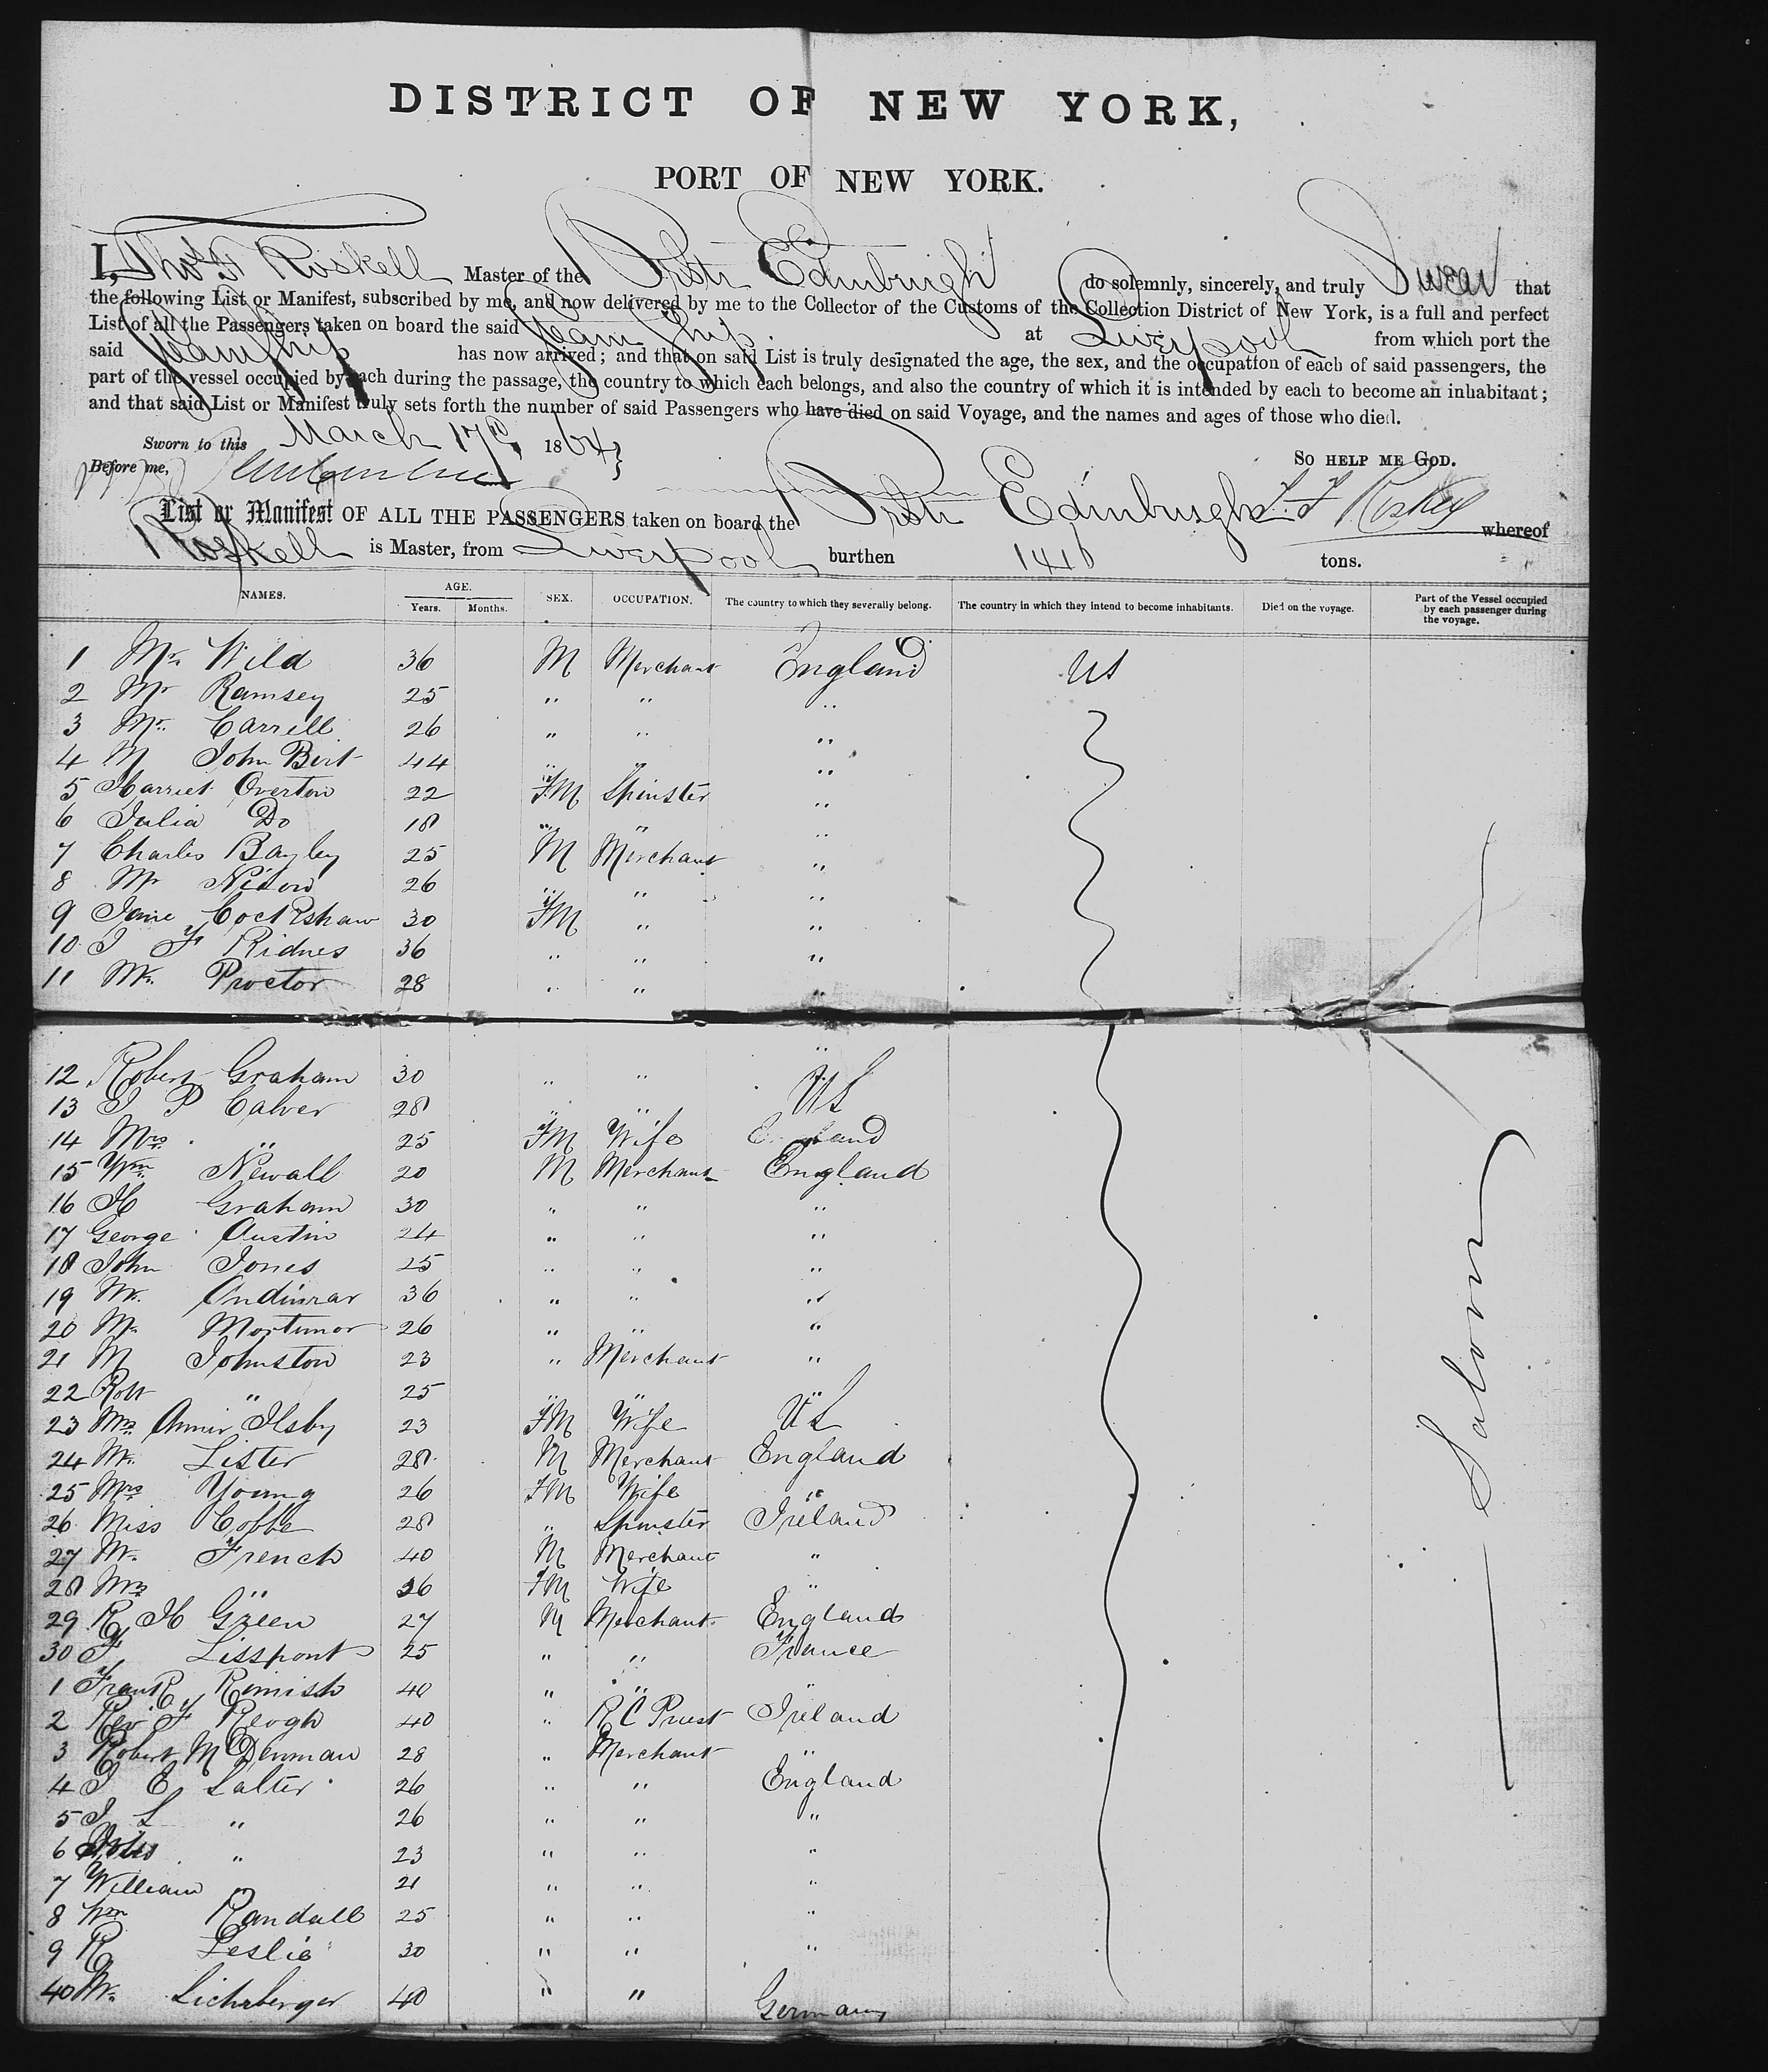 DISTRICT OF NEW YORK,
PORT OF NEW YORK.
I, Thos F Roskell Master of the Br Str Edinburgh do solemnly, sincerely, and truly Swear that
the following List or Manifest, subscribed by me, and now delivered by me to the Collector of the Customs of the Collection District of New York, is a full and perfect
List of all the Passengers taken on board the said Steam Ship at Liverpool from which port the
said Steam Ship has now arrived; and that on said List is truly designated the age, the sex, and the occupation of each of said passengers, the
part of the vessel occupied by each during the passage, the country to which each belongs, and also the country of which it is intended by each to become an inhabitant;
and that said List or Manifest truly sets forth the number of said Passengers who have died on said Voyage, and the names and ages of those who died.
Sworn to this March 17th 1864 }
Before me, SO HELP ME GOD.
T. F Roskell
List or Manifest OF ALL THE PASSENGERS taken on board the Br Str Edinburgh whereof
Roskell is Master, from Liverpool burthen 1416 tons.
NAMES. AGE. Years. Months. SEX. OCCUPATION. The country to which they severally belong. The country in which they intend to become inhabitants. Died on the voyage. Part of the Vessel occupied by each passenger during the voyage.
1 Mr. Wild 36 M Merchant England US
2 Mr Ramsey 25 " " "
3 Mr. Carrell 26 " " "
4 M John Birt 44 " " "
5 Harriet Overton 22 FM Spinster "
6 Julia Do 18 " " "
7 Charles Bayley 25 M Merchant "
8 Mr Nixon 26 " " "
9 Jane Cockshaw 30 FM " "
10 J F Ridnes 36 " " "
11 Mr. Proctor 28 " " "
12 Robert Graham 30 " " "
13 J P Calver 28 " " US
14 Mrs. " 25 FM Wife England
15 Wm Newall 20 M Merchant England
16 H Graham 30 " " "
17 George Austin 24 " " "
18 John Jones 25 " " "
19 Mr. 36 " " "
20 Mr Mortimor 26 " " "
21 M Johnston 23 " Merchant "
22 Robt " 25 " " "
23 Mrs Annie Ilsby 23 FM Wife US
24 Mr. Lister 28 M Merchant England
25 Mrs Young 26 FM Wife "
26 Miss Cobbe 28 " Spinster Ireland
27 Mr. French 40 M Merchant "
28 Mrs " 36 FM Wife "
29 R H Green 27 M Merchant England
30 F Lisspont 25 " " France
1 Frank Rimish 40 " " "
2 Rev F Keogh 40 " RC Priest Ireland
3 Robert M Denman 28 " Merchant "
4 J E Salter 26 " " England
5 J S " 26 " " "
6 " 23 " " "
7 William " 21 " " "
8 Wm Randall 25 " " "
9 R Leslie 30 " " "
40 Mr. Lichtberger 40 " " Germany
Saloon